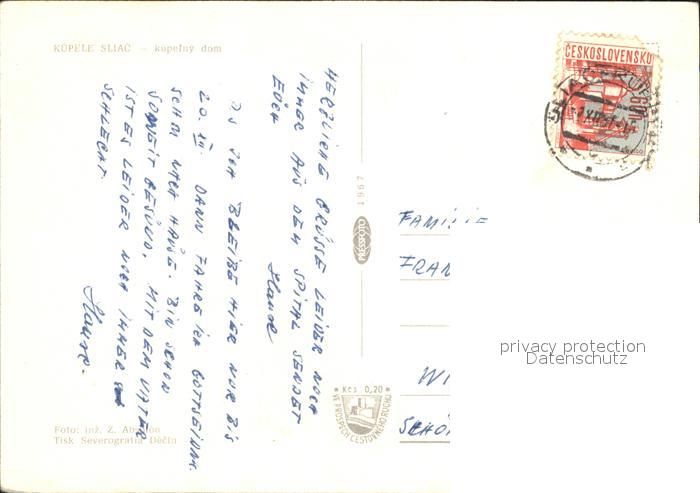 KÚPELE SLIAČ – kúpeľný dom
HERZLICHE GRÜSSE LEIDER NOCH
IMMER AUS DEM SPITAL SENDET
EUCH
PS ICH BLEIBE HIER NUR BIS
20. XII. DANN FAHRE ICH GOTTSEIDANK
SCHON NACH HAUSE. BIN SCHON
SOWEIT GESUND. MIT DEM VATER
IST ES LEIDER NOCH IMMER
SCHLECHT.
Foto: inž. Z. Absolon
Tisk Severografia Děčín
1967
PRESSFOTO
Kčs 0,20
VE PROSPĚCH CESTOVNÍHO RUCHU
ČESKOSLOVENSKO
SLIAČ
FAMILIE
FRAN
WI
SCHÖ
privacy protection
Datenschutz